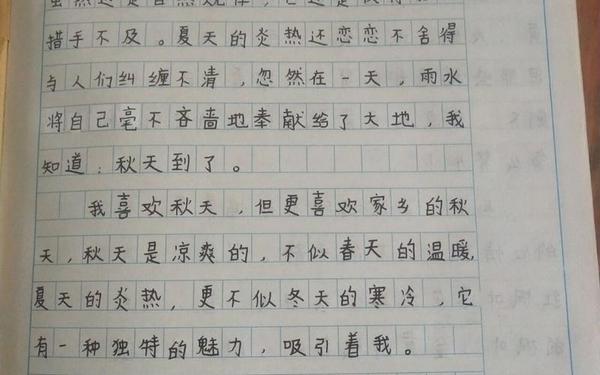 措手不及。夏天的炎热还恋恋不舍得
与人们纠缠不清，忽然在一天，雨水
将自己毫不吝啬地奉献给了大地，我
知道：秋天到了。
我喜欢秋天，但更喜欢家乡的秋
天，秋天是凉爽的，不似春天的温暖，
夏天的炎热，更不似冬天的寒冷，它
有一种独特的魅力，吸引着我。